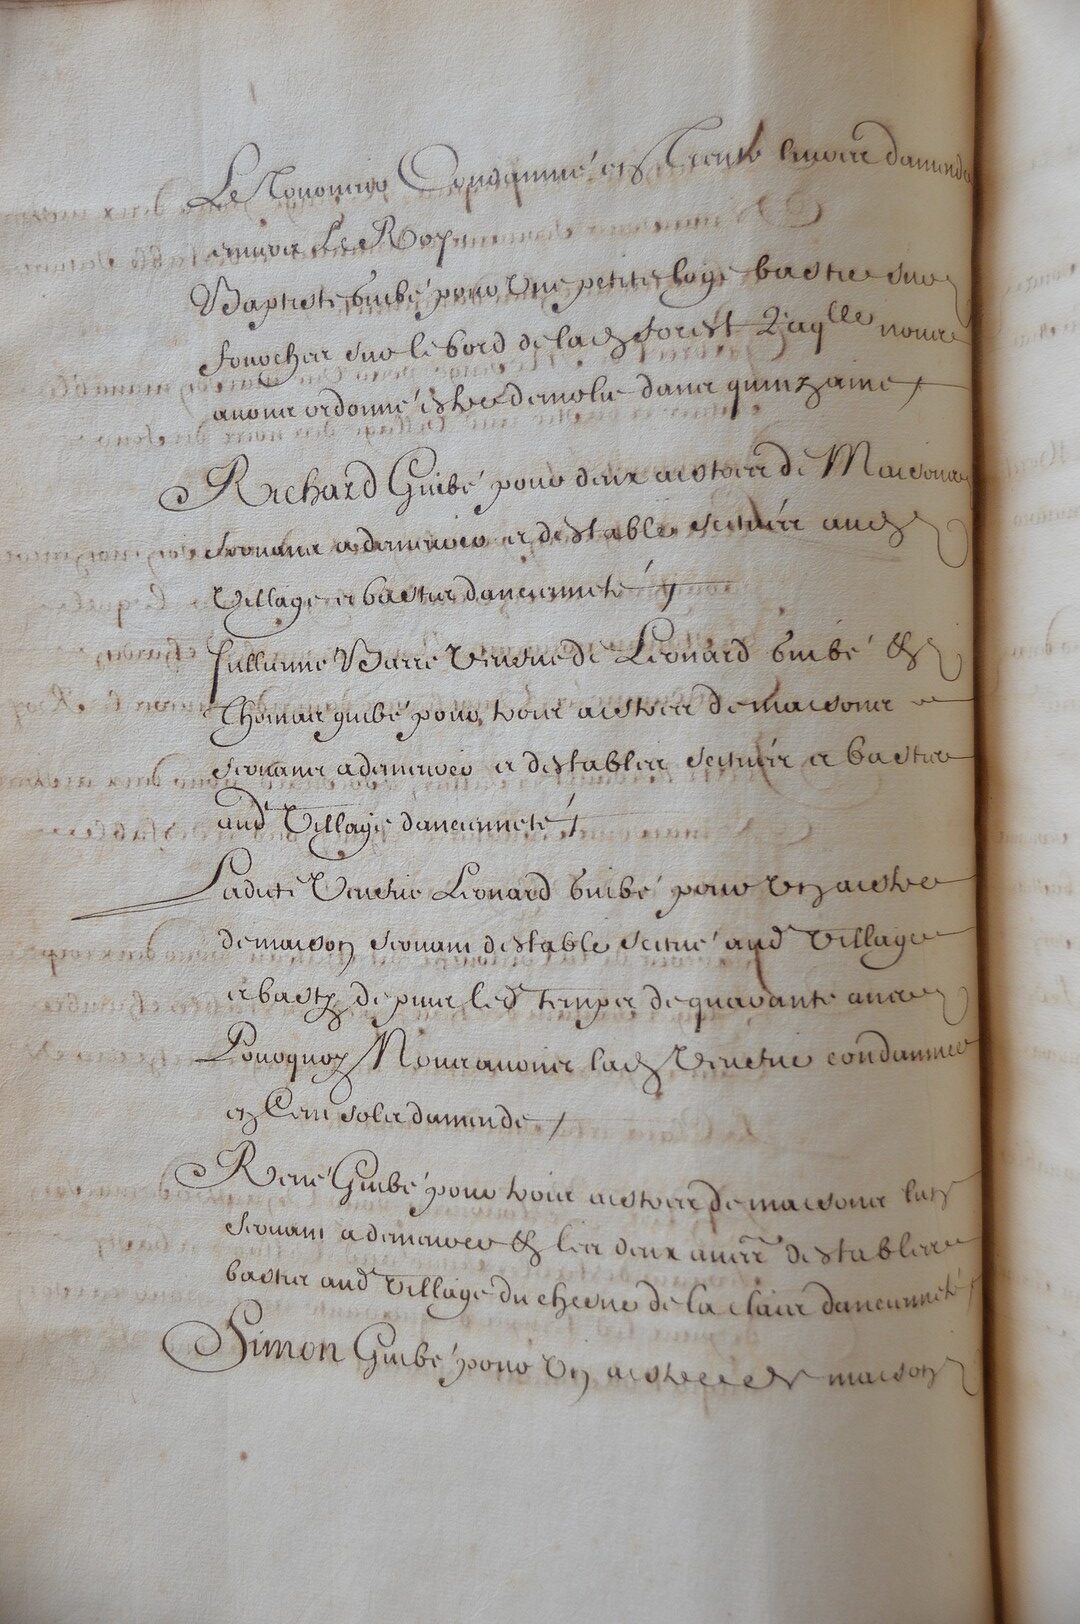 Le Tonnerre Condamné en Trente livres damende
envers Le Roy
Baptiste Guibé pour Une petite loge bastie sur
fourches sur le bord de lad forest Laqlle nous
avons ordonné estre demolie dans quinzaine /
Richard Guibé pour deux aistres de Maisons
servans a demeurer et destable scituée aud
Village et bastis dancienneté /
Jullienne Barre Veufve de Leonard Guibé Et
Thomas guibé pour trois aistres de maisons
servans a demeurer et destables scituées et bastis
aud Village danciennete /
Ladite Veufve Leonard Guibé pour Un aistre
de maison servant destable scitué aud Village
et basty depuis led temps de quarante ans
Pourquoy Nous avons lad Veufve condamnee
en Cent sols damende /
René Guibé pour trois aistres de maisons lun
servant a demeurer Et les deux aures destables
bastis aud Village du chesne de la claie danciennete /
Simon Guibé pour Un aistre de maison